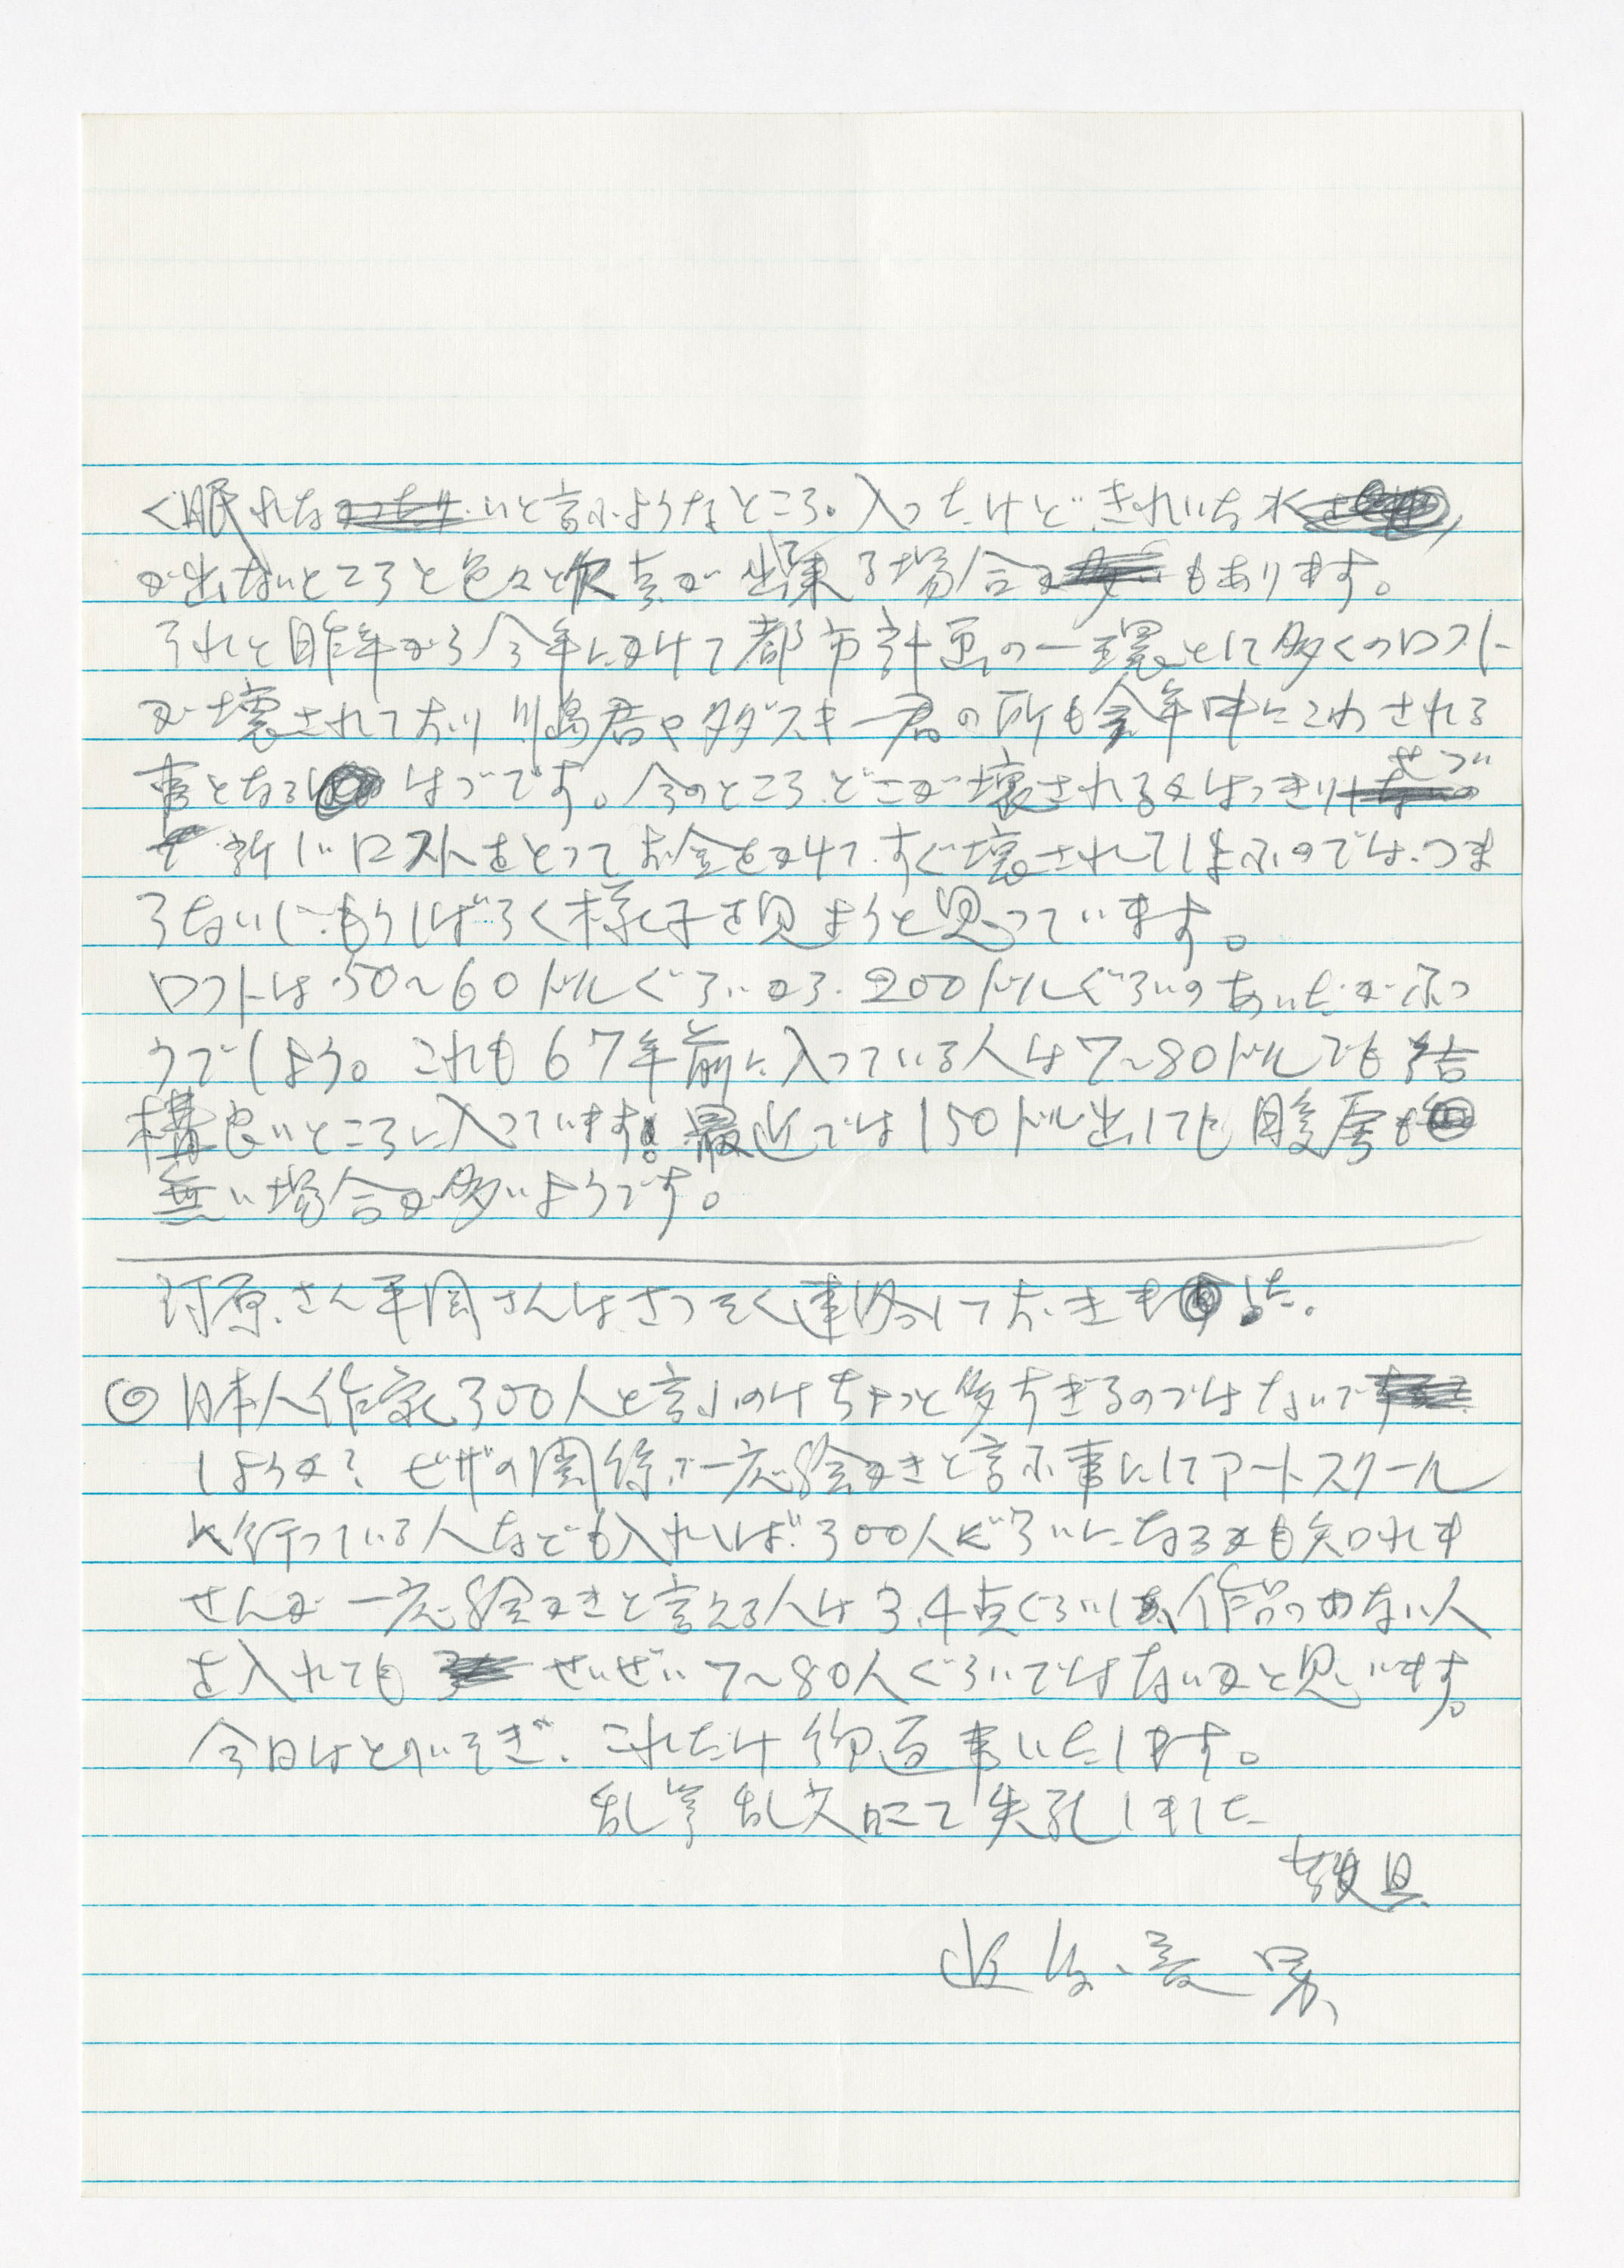 く眠れないと言ふようなところ。入ったけど、きれいな水
が出ないところと色々と欠点が出て来る場合もあります。
それと昨年から今年にかけて都市計画の一環として多くのロフト
が壊されており川島君やタダスキー君の所も今年中にこわされる
事となるはづです。今のところどこが壊されるかはっきりせづ
新しいロフトをとってお金をかけて、すぐ壊されてしまふのでは、つま
らないし、もうしばらく様子を見ようと思っています。
ロフトは50〜60ドルぐらいから200ドルぐらいのあいだがふつ
うでしょう。これも67年前に入っている人は7〜80ドルでも結
構良いところに入っています。最近では150ドル出しても暖房も
無い場合が多いようです。
河原さん平岡さんはさっそく連絡しておきました。
◎日本人作家300人と言ふのはちょっと多すぎるのではないで
しょうか?ビザの関係で一応絵かきと言ふ事にしてアートスクール
に行っている人なども入れれば300人ぐらいになるかも知れま
せんが一応絵かきと言える人は3,4点ぐらいしか作品のない人
を入れてもせいぜい7〜80人ぐらいではないかと思います。
今日はとりいそぎ、これだけ御返事いたします。
乱筆乱文にて失礼しました
敬具
近 男